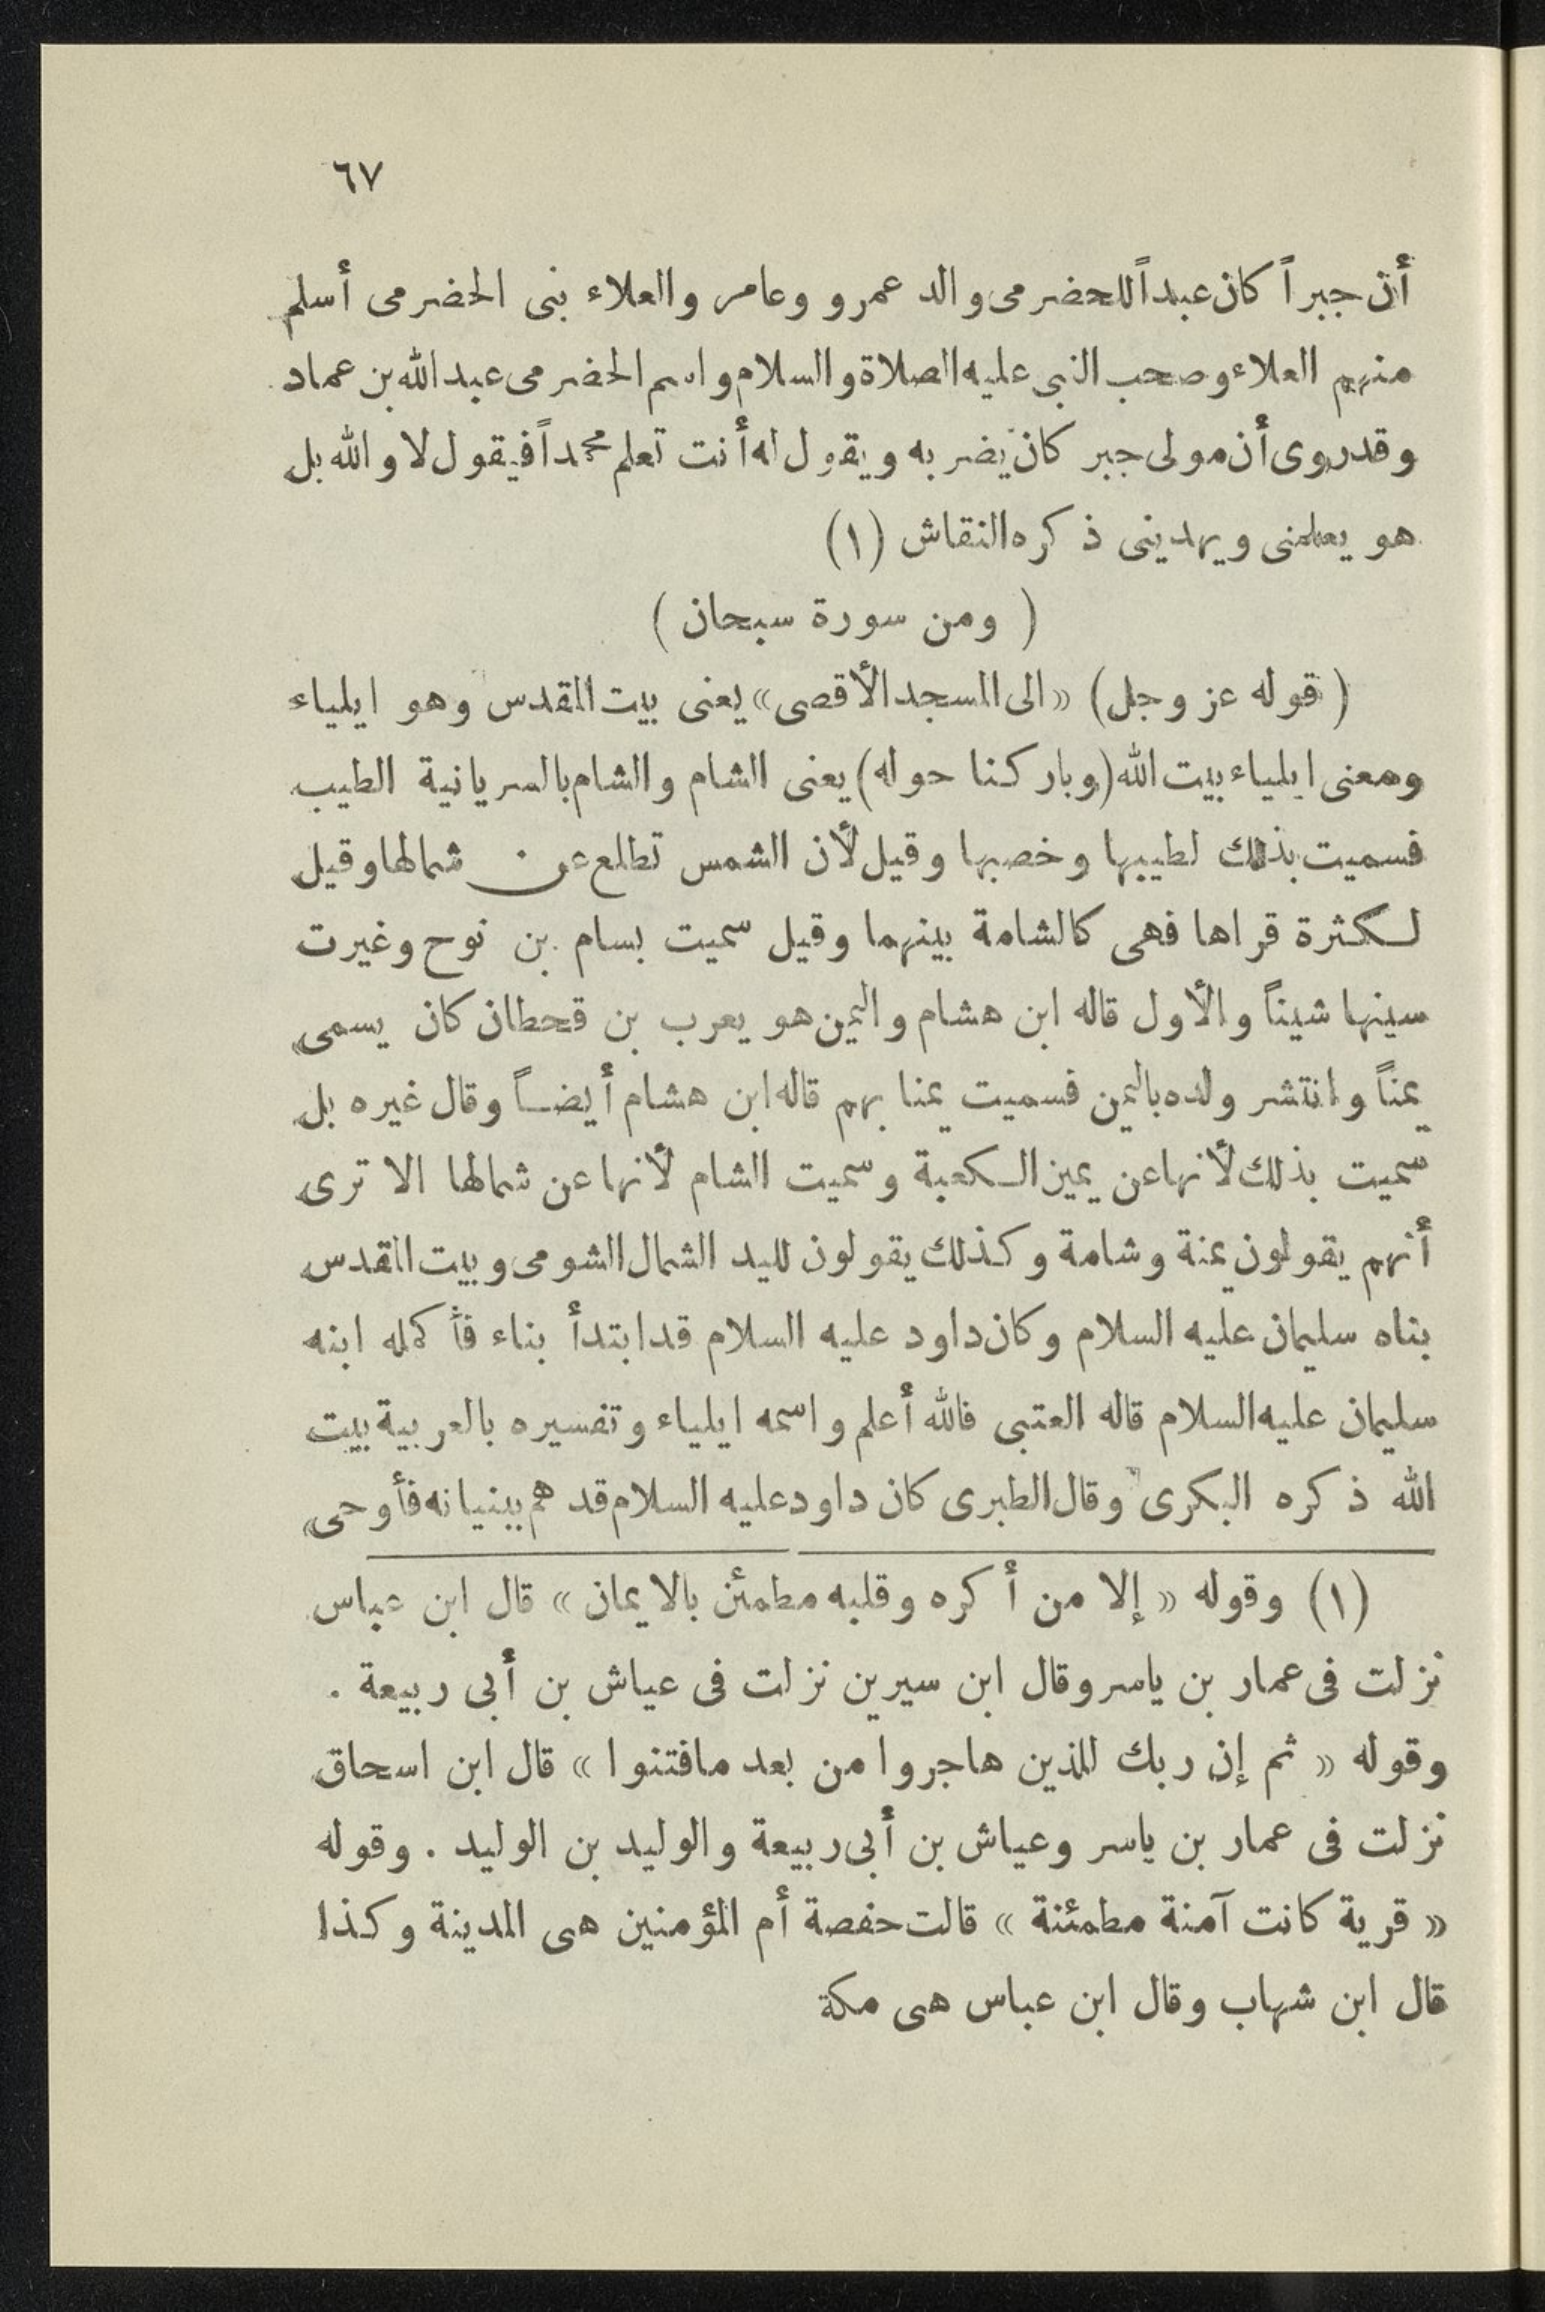 ٦٧
أن جبراً كان عبداً للحضرمى والد عمرو وعامر والعلاء بنى الحضرمى أسلم
منهم العلاء وصحب النبى عليه الصلاة والسلام واسم الحضرمى عبد الله بن عماد
وقد روى أن مولى جبر كان يضربه ويقول له أنت تعلم محمداً فيقول لا والله بل
هو يعلمنى ويهدينى ذكره النقاش (١)
( ومن سورة سبحان )
( قوله عز وجل ) « الى المسجد الأقصى » يعنى بيت المقدس وهو ايلياء
ومعنى ايلياء بيت الله (وباركنا حوله) يعنى الشام والشام بالسريانية الطيب
فسميت بذلك لطيبها وخصبها وقيل لأن الشمس تطلع عن شمالها وقيل
لكثرة قراها فهى كالشامة بينهما وقيل سميت بسام بن نوح وغيرت
سينها شيناً والأول قاله ابن هشام واليمن هو يعرب بن قحطان كان يسمى
يمناً وانتشر ولده باليمن فسميت يمنا بهم قاله ابن هشام أيضاً وقال غيره بل
سميت بذلك لأنها عن يمين الكعبة وسميت الشام لأنها عن شمالها الا ترى
أنهم يقولون يمنة وشامة وكذلك يقولون لليد الشمال الشومى وبيت المقدس
بناه سليمان عليه السلام وكان داود عليه السلام قد ابتدأ بناء فأكمله ابنه
سليمان عليه السلام قاله العتبى فالله أعلم واسمه ايلياء وتفسيره بالعربية بيت
الله ذكره البكرى وقال الطبرى كان داود عليه السلام قد هم ببنيانه فأوحى
(١) وقوله « إلا من أكره وقلبه مطمئن بالايمان » قال ابن عباس
نزلت فى عمار بن ياسر وقال ابن سيرين نزلت فى عياش بن أبى ربيعة .
وقوله « ثم إن ربك للذين هاجروا من بعد مافتنوا » قال ابن اسحاق
نزلت فى عمار بن ياسر وعياش بن أبى ربيعة والوليد بن الوليد . وقوله
« قرية كانت آمنة مطمئنة » قالت حفصة أم المؤمنين هى المدينة وكذا
قال ابن شهاب وقال ابن عباس هى مكة